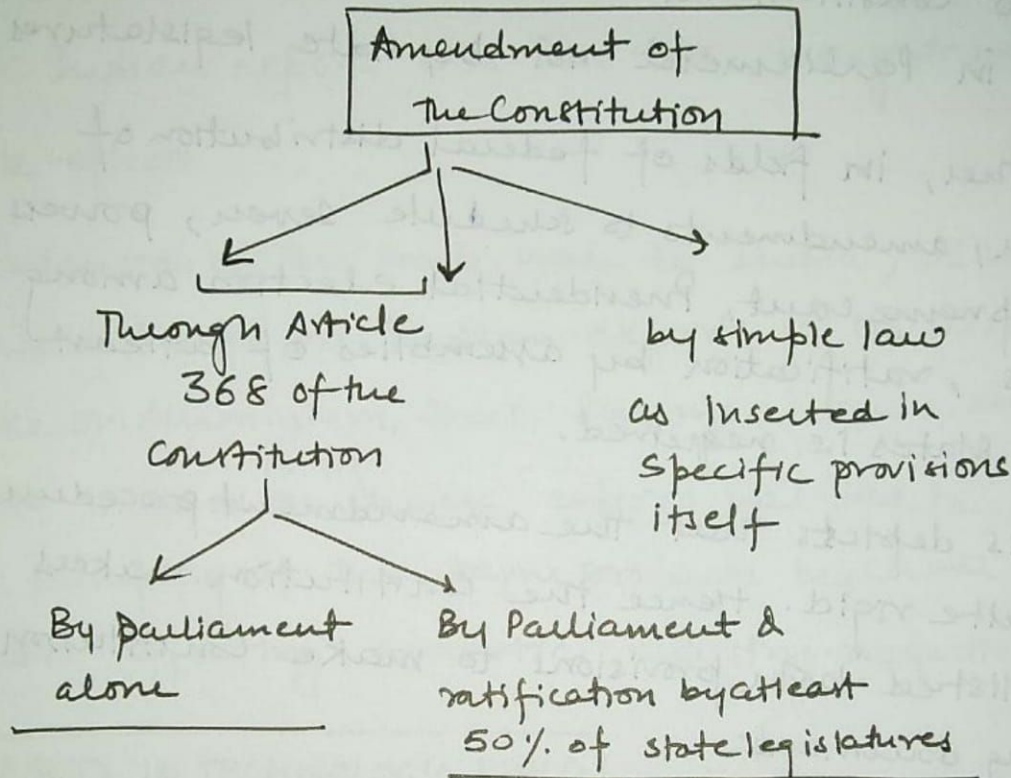 Amendment of
the Constitution
Through Article
368 of the
Constitution
by simple law
as Inserted in
specific provisions
itself
By parliament
alone
By Parliament &
ratification by atleast
50% of state legislatures